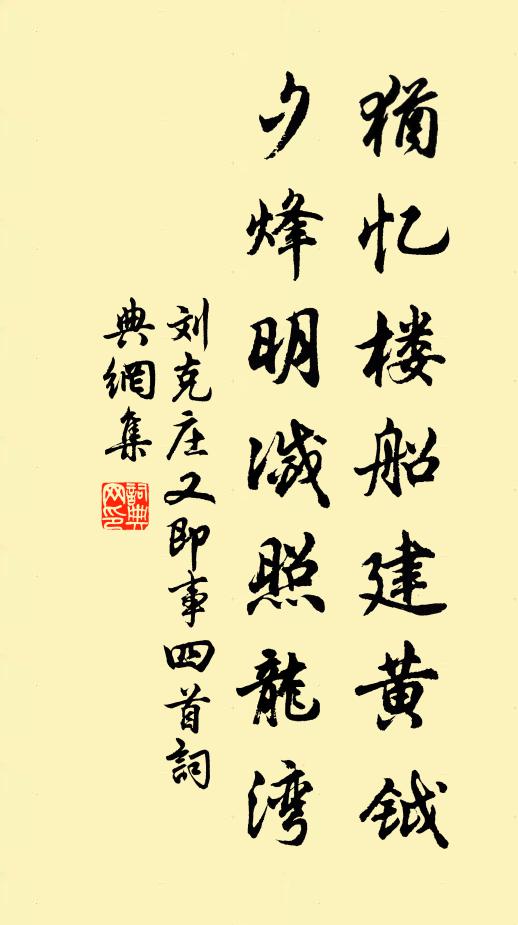 猶忆楼船建黄钺
夕烽明滅照龍湾
刘克庄又即事四首詞
典網集
詞典网印